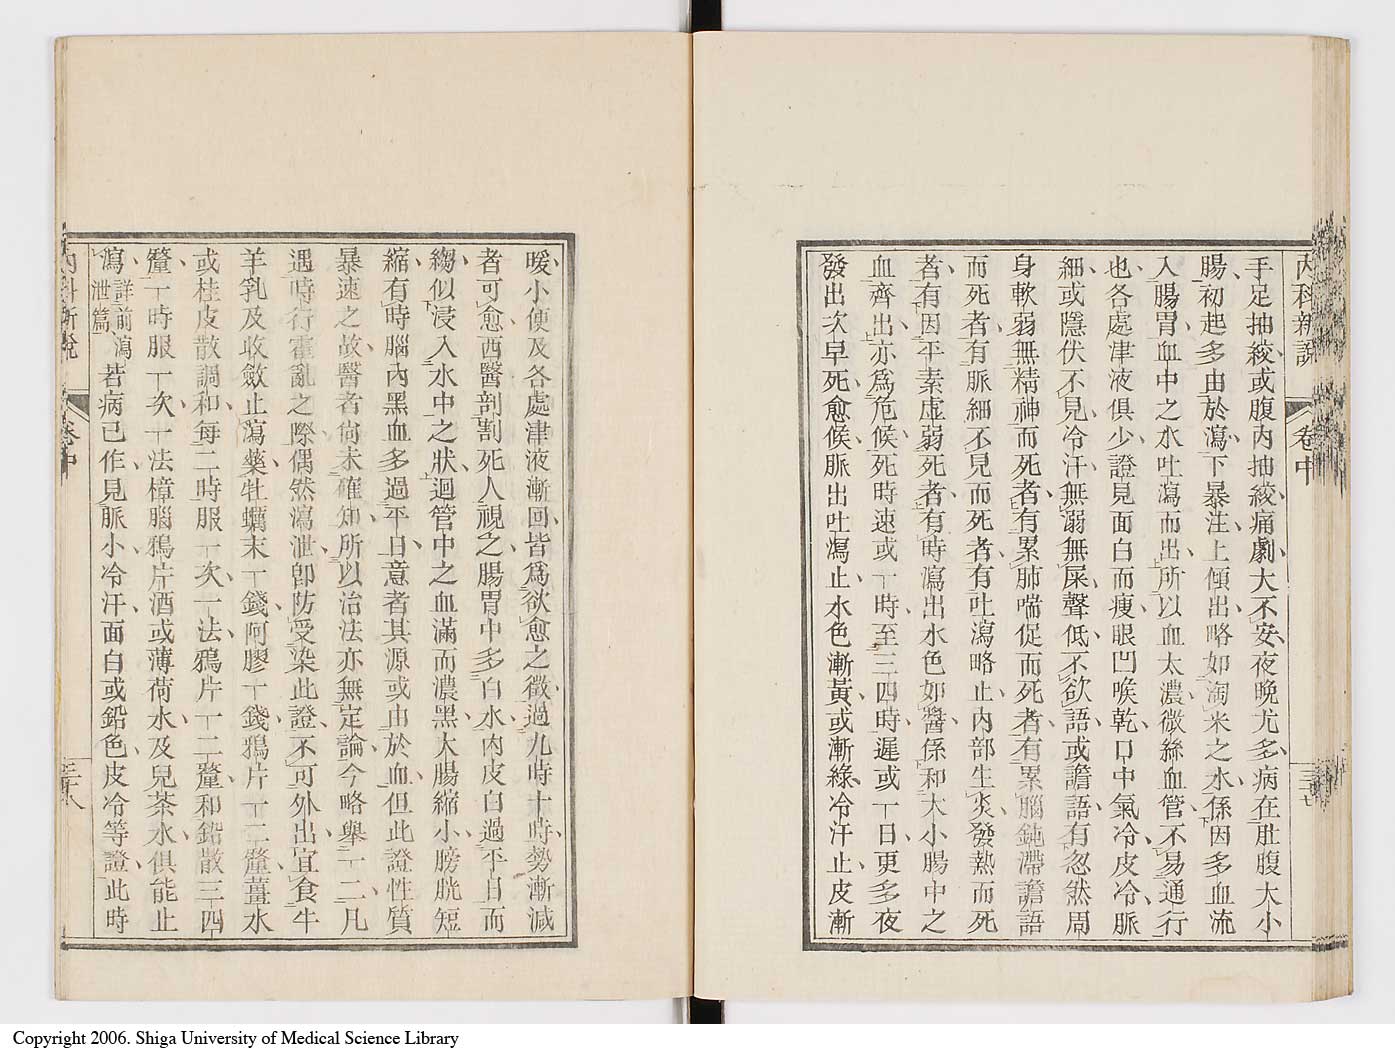 內科新說
卷中
三十七
手足抽繞或腹內抽繞痛劇大不安夜晚尤多病在肚腹大小
腸初起多由於瀉下暴注上傾出略如淘米之水係因多血流
入腸胃血中之水吐瀉而出所以血太濃微絲血管不易通行
也各處津液俱少證見面白而瘦眼凹喉乾口中氣冷皮冷脈
細或隱伏不見冷汗無溺無屎聲低不欲語或譫語有忽然周
身軟弱無精神而死者有累肺喘促而死者有累腦鈍滯譫語
而死者有脈細不見而死者有吐瀉略止內部生炎發熱而死
者有因平素虛弱死者有時瀉出水色如醬係和大小腸中之
血齊出亦爲危候死時速或一時至三四時遲或一日更多夜
發出次早死愈候脈出吐瀉止水色漸黃或漸綠冷汗止皮漸
暖小便及各處津液漸回皆爲欲愈之徵過九時十時勢漸減
者可愈西醫剖割死人視之腸胃中多白水內皮白過平日而
縐似浸入水中之狀迴管中之血滿而濃黑大腸縮小膀胱短
縮有時腦內黑血多過平日意者其源或由於血但此證性質
暴速之故醫者尙未確知所以治法亦無定論今略舉一二凡
遇時行霍亂之際偶然瀉泄卽防受染此證不可外出宜食牛
羊乳及收斂止瀉藥牡蠣末一錢阿膠一錢鴉片一二釐薑水
或桂皮散調和每二時服一次一法鴉片一二釐和鉛散三四
釐一時服一次一法樟腦鴉片酒或薄荷水及兒茶水俱能止
瀉詳前瀉泄篇若病已作見脈小冷汗面白或鉛色皮冷等證此時
內科新說
卷中
三十八
Copyright 2006. Shiga University of Medical Science Library